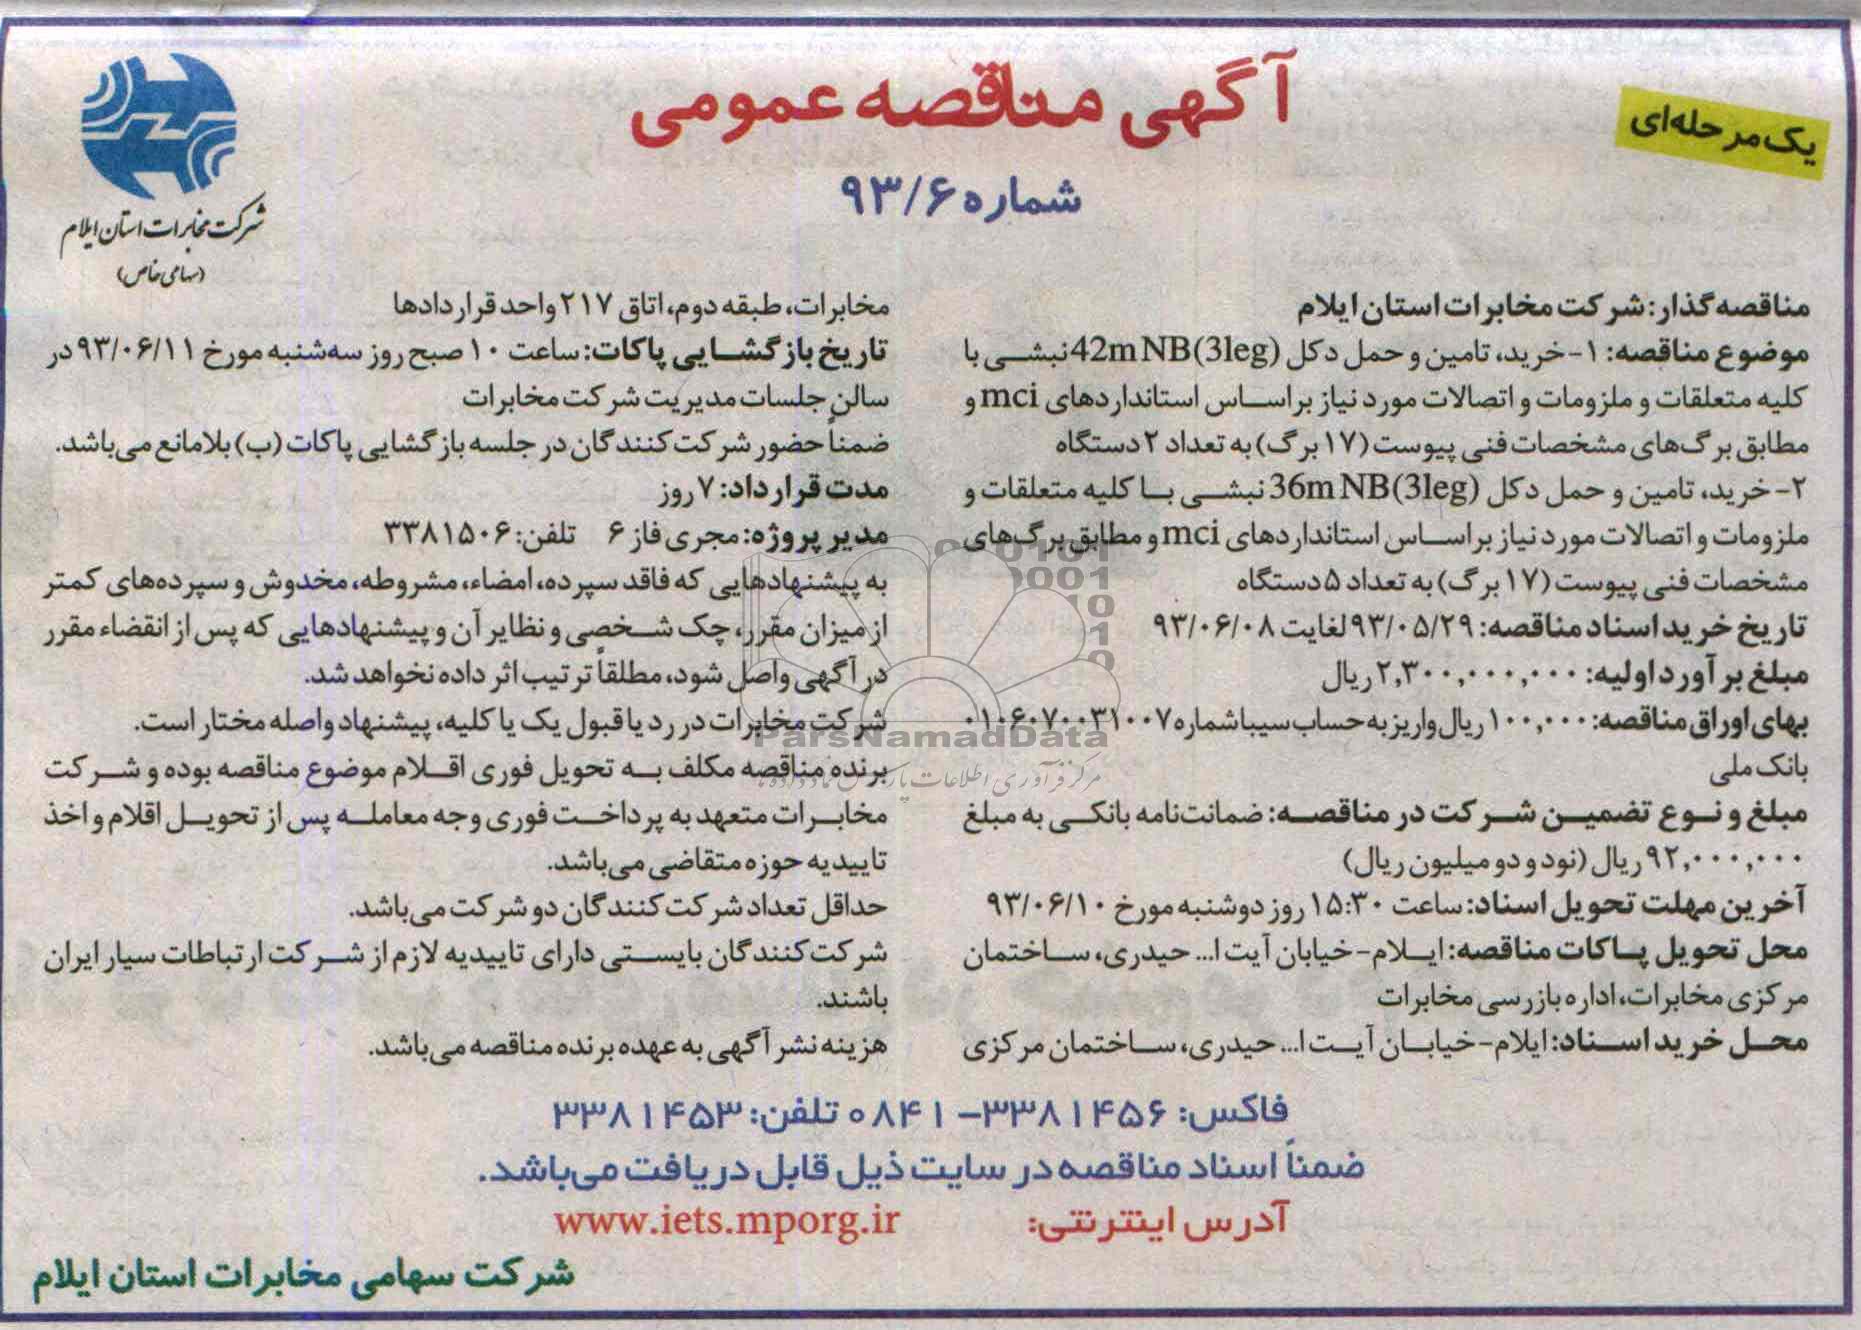 یک‌مرحله‌ای
آگهی مناقصه عمومی
شماره ۹۳/۶
شرکت مخابرات استان ایلام
(سهامی خاص)
مناقصه‌گذار: شرکت مخابرات استان ایلام
موضوع مناقصه: ۱- خرید، تامین و حمل دکل 42m NB(3leg) نبشی با
کلیه متعلقات و ملزومات و اتصالات مورد نیاز براساس استانداردهای mci و
مطابق برگ‌های مشخصات فنی پیوست (۱۷ برگ) به تعداد ۲ دستگاه
۲- خرید، تامین و حمل دکل 36m NB(3leg) نبشی با کلیه متعلقات و
ملزومات و اتصالات مورد نیاز براساس استانداردهای mci و مطابق برگ‌های
مشخصات فنی پیوست (۱۷ برگ) به تعداد ۵ دستگاه
تاریخ خرید اسناد مناقصه: ۹۳/۰۵/۲۹ لغایت ۹۳/۰۶/۰۸
مبلغ برآورد اولیه: ۲,۳۰۰,۰۰۰,۰۰۰ ریال
بهای اوراق مناقصه: ۱۰۰,۰۰۰ ریال واریز به حساب سیبا شماره ۰۱۰۶۰۷۰۰۳۱۰۰۷
بانک ملی
مبلغ و نوع تضمین شرکت در مناقصه: ضمانت‌نامه بانکی به مبلغ
۹۲,۰۰۰,۰۰۰ ریال (نود و دو میلیون ریال)
آخرین مهلت تحویل اسناد: ساعت ۱۵:۳۰ روز دوشنبه مورخ ۹۳/۰۶/۱۰
محل تحویل پاکات مناقصه: ایلام- خیابان آیت ا... حیدری، ساختمان
مرکزی مخابرات، اداره بازرسی مخابرات
محل خرید اسناد: ایلام- خیابان آیت ا... حیدری، ساختمان مرکزی
مخابرات، طبقه دوم، اتاق ۲۱۷ واحد قراردادها
تاریخ بازگشایی پاکات: ساعت ۱۰ صبح روز سه‌شنبه مورخ ۹۳/۰۶/۱۱ در
سالن جلسات مدیریت شرکت مخابرات
ضمناً حضور شرکت‌کنندگان در جلسه بازگشایی پاکات (ب) بلامانع می‌باشد.
مدت قرارداد: ۷ روز
مدیر پروژه: مجری فاز ۶ تلفن: ۳۳۸۱۵۰۶
به پیشنهادهایی که فاقد سپرده، امضاء، مشروطه، مخدوش و سپرده‌های کمتر
از میزان مقرر، چک شخصی و نظایر آن و پیشنهادهایی که پس از انقضاء مقرر
در آگهی واصل شود، مطلقاً ترتیب اثر داده نخواهد شد.
شرکت مخابرات در رد یا قبول یک یا کلیه، پیشنهاد واصله مختار است.
برنده مناقصه مکلف به تحویل فوری اقلام موضوع مناقصه بوده و شرکت
مخابرات متعهد به پرداخت فوری وجه معامله پس از تحویل اقلام و اخذ
تاییدیه حوزه متقاضی می‌باشد.
حداقل تعداد شرکت‌کنندگان دو شرکت می‌باشد.
شرکت‌کنندگان بایستی دارای تاییدیه لازم از شرکت ارتباطات سیار ایران
باشند.
هزینه نشر آگهی به عهده برنده مناقصه می‌باشد.
ParsNamadData
فاکس: ۳۳۸۱۴۵۶-۰۸۴۱ تلفن: ۳۳۸۱۴۵۳
ضمناً اسناد مناقصه در سایت ذیل قابل دریافت می‌باشد.
آدرس اینترنتی: www.iets.mporg.ir
شرکت سهامی مخابرات استان ایلام